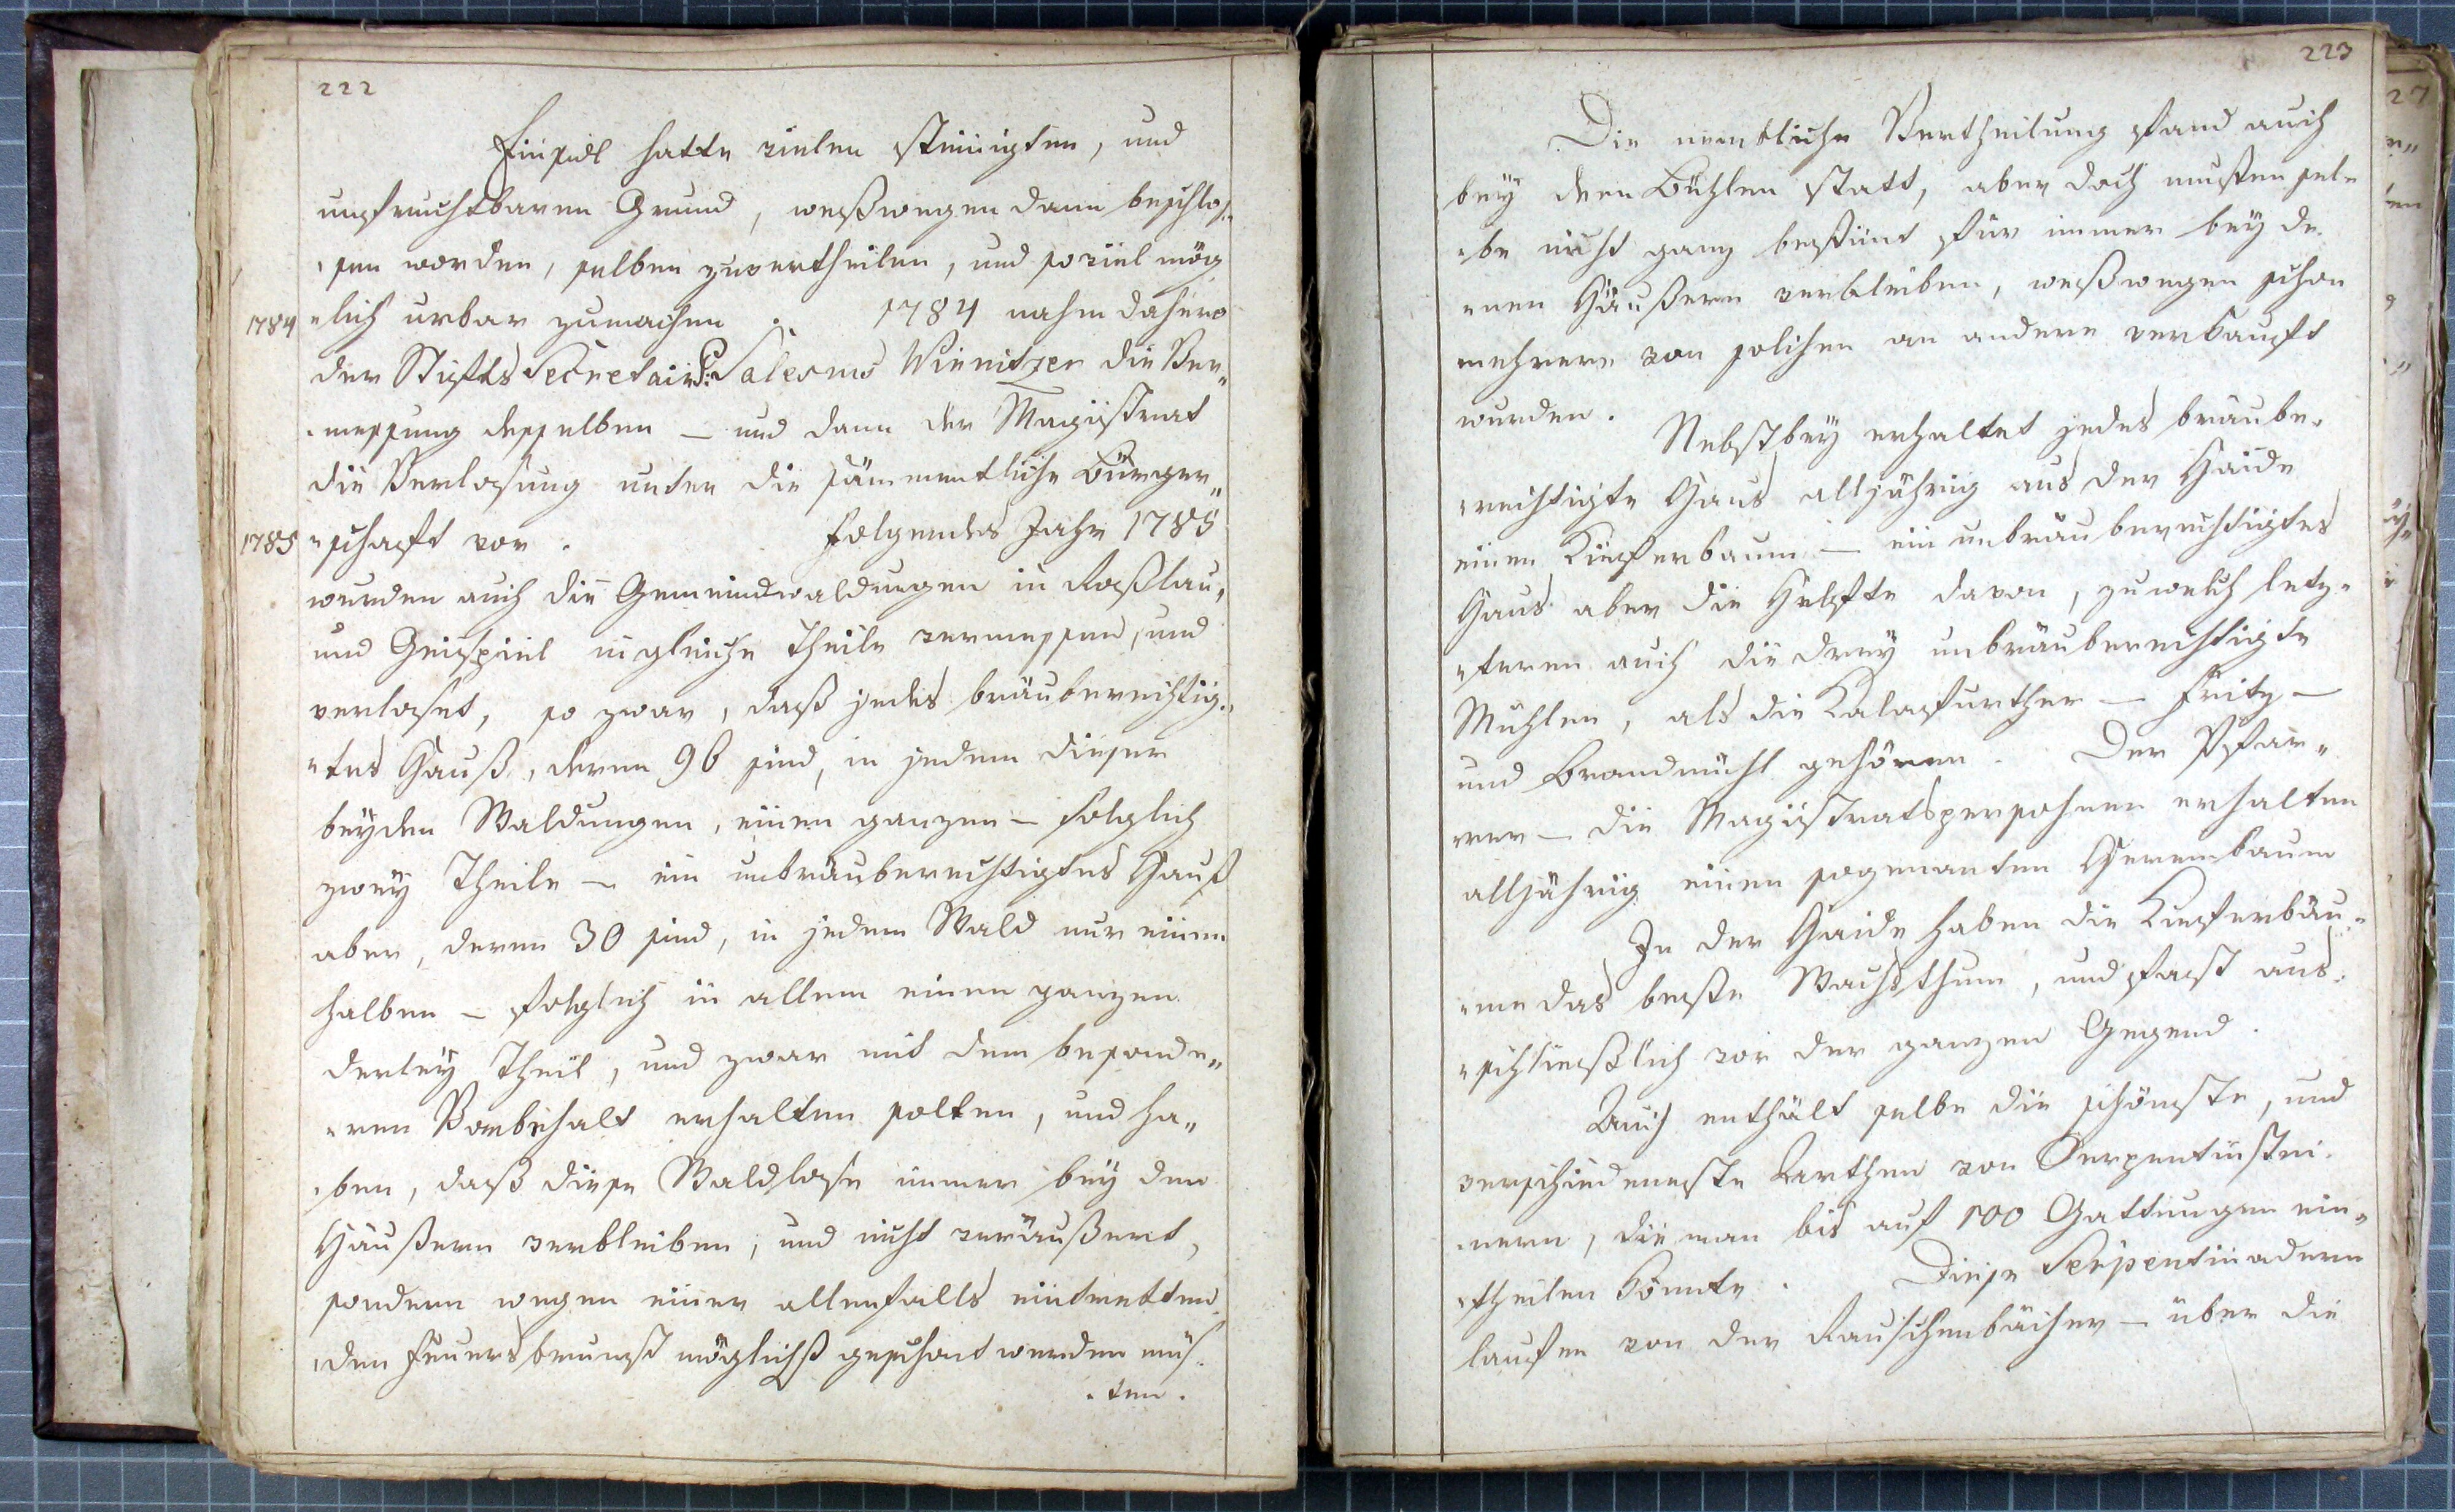 222
Einsidl hatte vielen steinigten, und
unfruchtbaren Grund, weßwegen dann beschlos„
„sen worden, selben zuvertheilen, und soviel mög
1784 „lich urbar zumachen. 1784 nahm dahero
der Stifts Secretair P: Salesius Winnitzer die Ver„
„messung desselben – und dann der Magistrat
die Verlosung unter die sämmentliche Bürger„
1785 „schaft vor. Folgendes Jahr 1785
wurden auch die Gemeindwaldungen in Roßlau,
und Geispiel in gleiche Theile vermessen, und
verloset, so zwar, daß jedes bräuberechtig„
„tes Hauß, deren 96 sind, in jedem dieser
beyden Waldungen, einen ganzen – folglich
zwey Theile – ein unbräuberechtigtes Hauß
aber, deren 30 sind, in jedem Wald nur einen
halben – folglich in allem einen ganzen
derley Theil, und zwar mit dem besonde„
„ren Vorbehalt erhalten solten, und ha„
„ben, daß diese Waldlose immer bey den
Häußern verbleiben, und nicht veräußert,
sondern wegen einer allenfalls eintretten
„den Feuersbrunst möglichst geschont werden müs
„ten.
223
Die nembliche Vertheilung fand auch
bey den Bühlen statt, aber doch mußten sel„
„be nicht ganz bestimt für immer bey de
„nen Häußern verbleiben, weßwegen schon
mehrere von solchen an andere verkauft
wurden. Nebstbey erhaltet jedes bräube„
„rechtigte Haus alljährig aus der Haide
einen Kieferbaum – ein unbräuberechtigtes
Haus aber die Helfte davon, zu welch letz„
„teren auch die drey unbräuberechtigte
Mühlen, als die Kalafurther – Fritz –
und Brandmühl gehören. Der Pfar„
rer – die Magistratspersohnen erhalten
alljährig einen sogenanten Herrenbaum
In der Haide haben die Kieferbäu„
„me das beste Wachsthum, und fast aus„
„schließlich vor der ganzen Gegend.
Auch enthält selbe die schönste, und
verschiedenste Arthen von Serpentinstei„
„nern, die man bis auf 100 Gattungen ein„
„theilen könnte. Diese Serpentinadern
laufen von der Rauschenbächer – über die